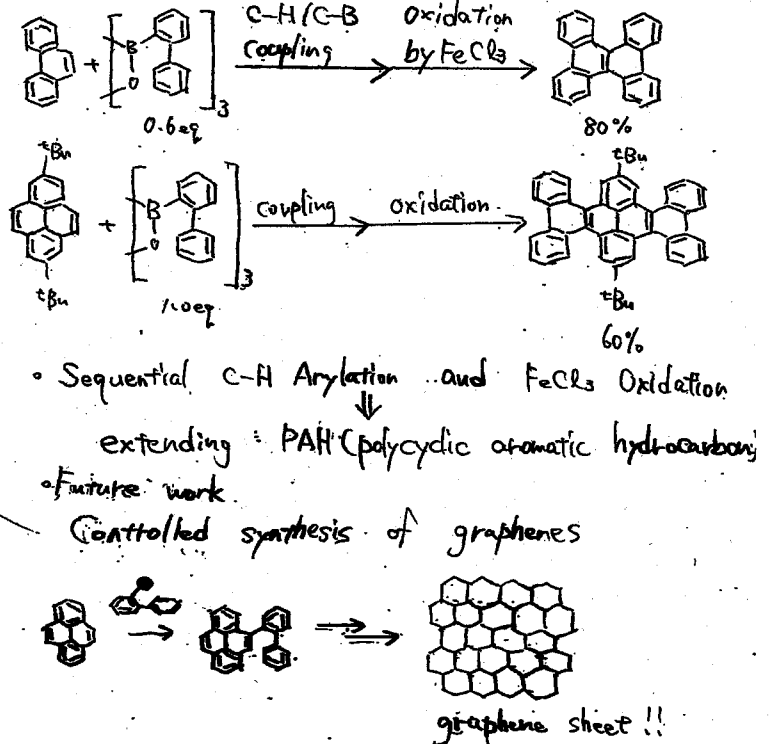 C-H/C-B Oxidation
Coupling by FeCl3
+ B O 3
0.6eq
80%
tBu tBu
+ B O 3 coupling oxidation
tBu 1.0eq tBu
60%
• Sequential C-H Arylation and FeCl3 Oxidation
⇓
extending : PAH (polycyclic aromatic hydrocarbon)
• Future work
Controlled synthesis of graphenes
graphene sheet !!